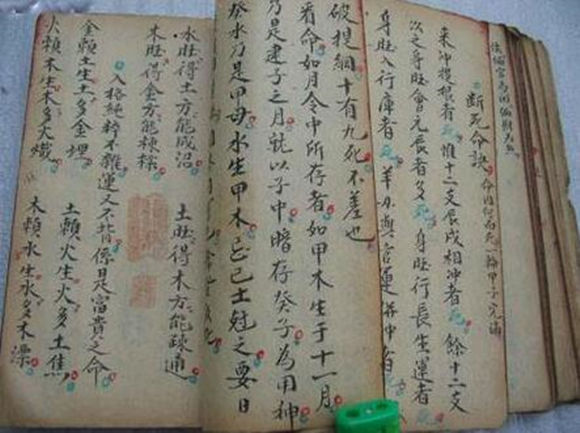 斷死命訣 命因何而死一輪甲子完滿
來沖提根者死惟十二支辰戌相沖者死餘十二支
以之身旺會元辰者多死身旺行長生運者
身旺入行庫者死羊刃與官運併沖者
破提綱十有九死不差也
看命如月令中所存者如甲木生于十一月
乃是建子之月就以子中暗存癸子為用神
癸水乃是甲母水生甲木忌己土尅之要日
水旺得土方能成沼 土旺得木方能疎通
木旺得金方能棟樑
入格純粹不雜運又不背係是富貴之命
金賴土生土多金埋 土賴火生火多土焦
火賴木生木多火熾 木賴水生水多木